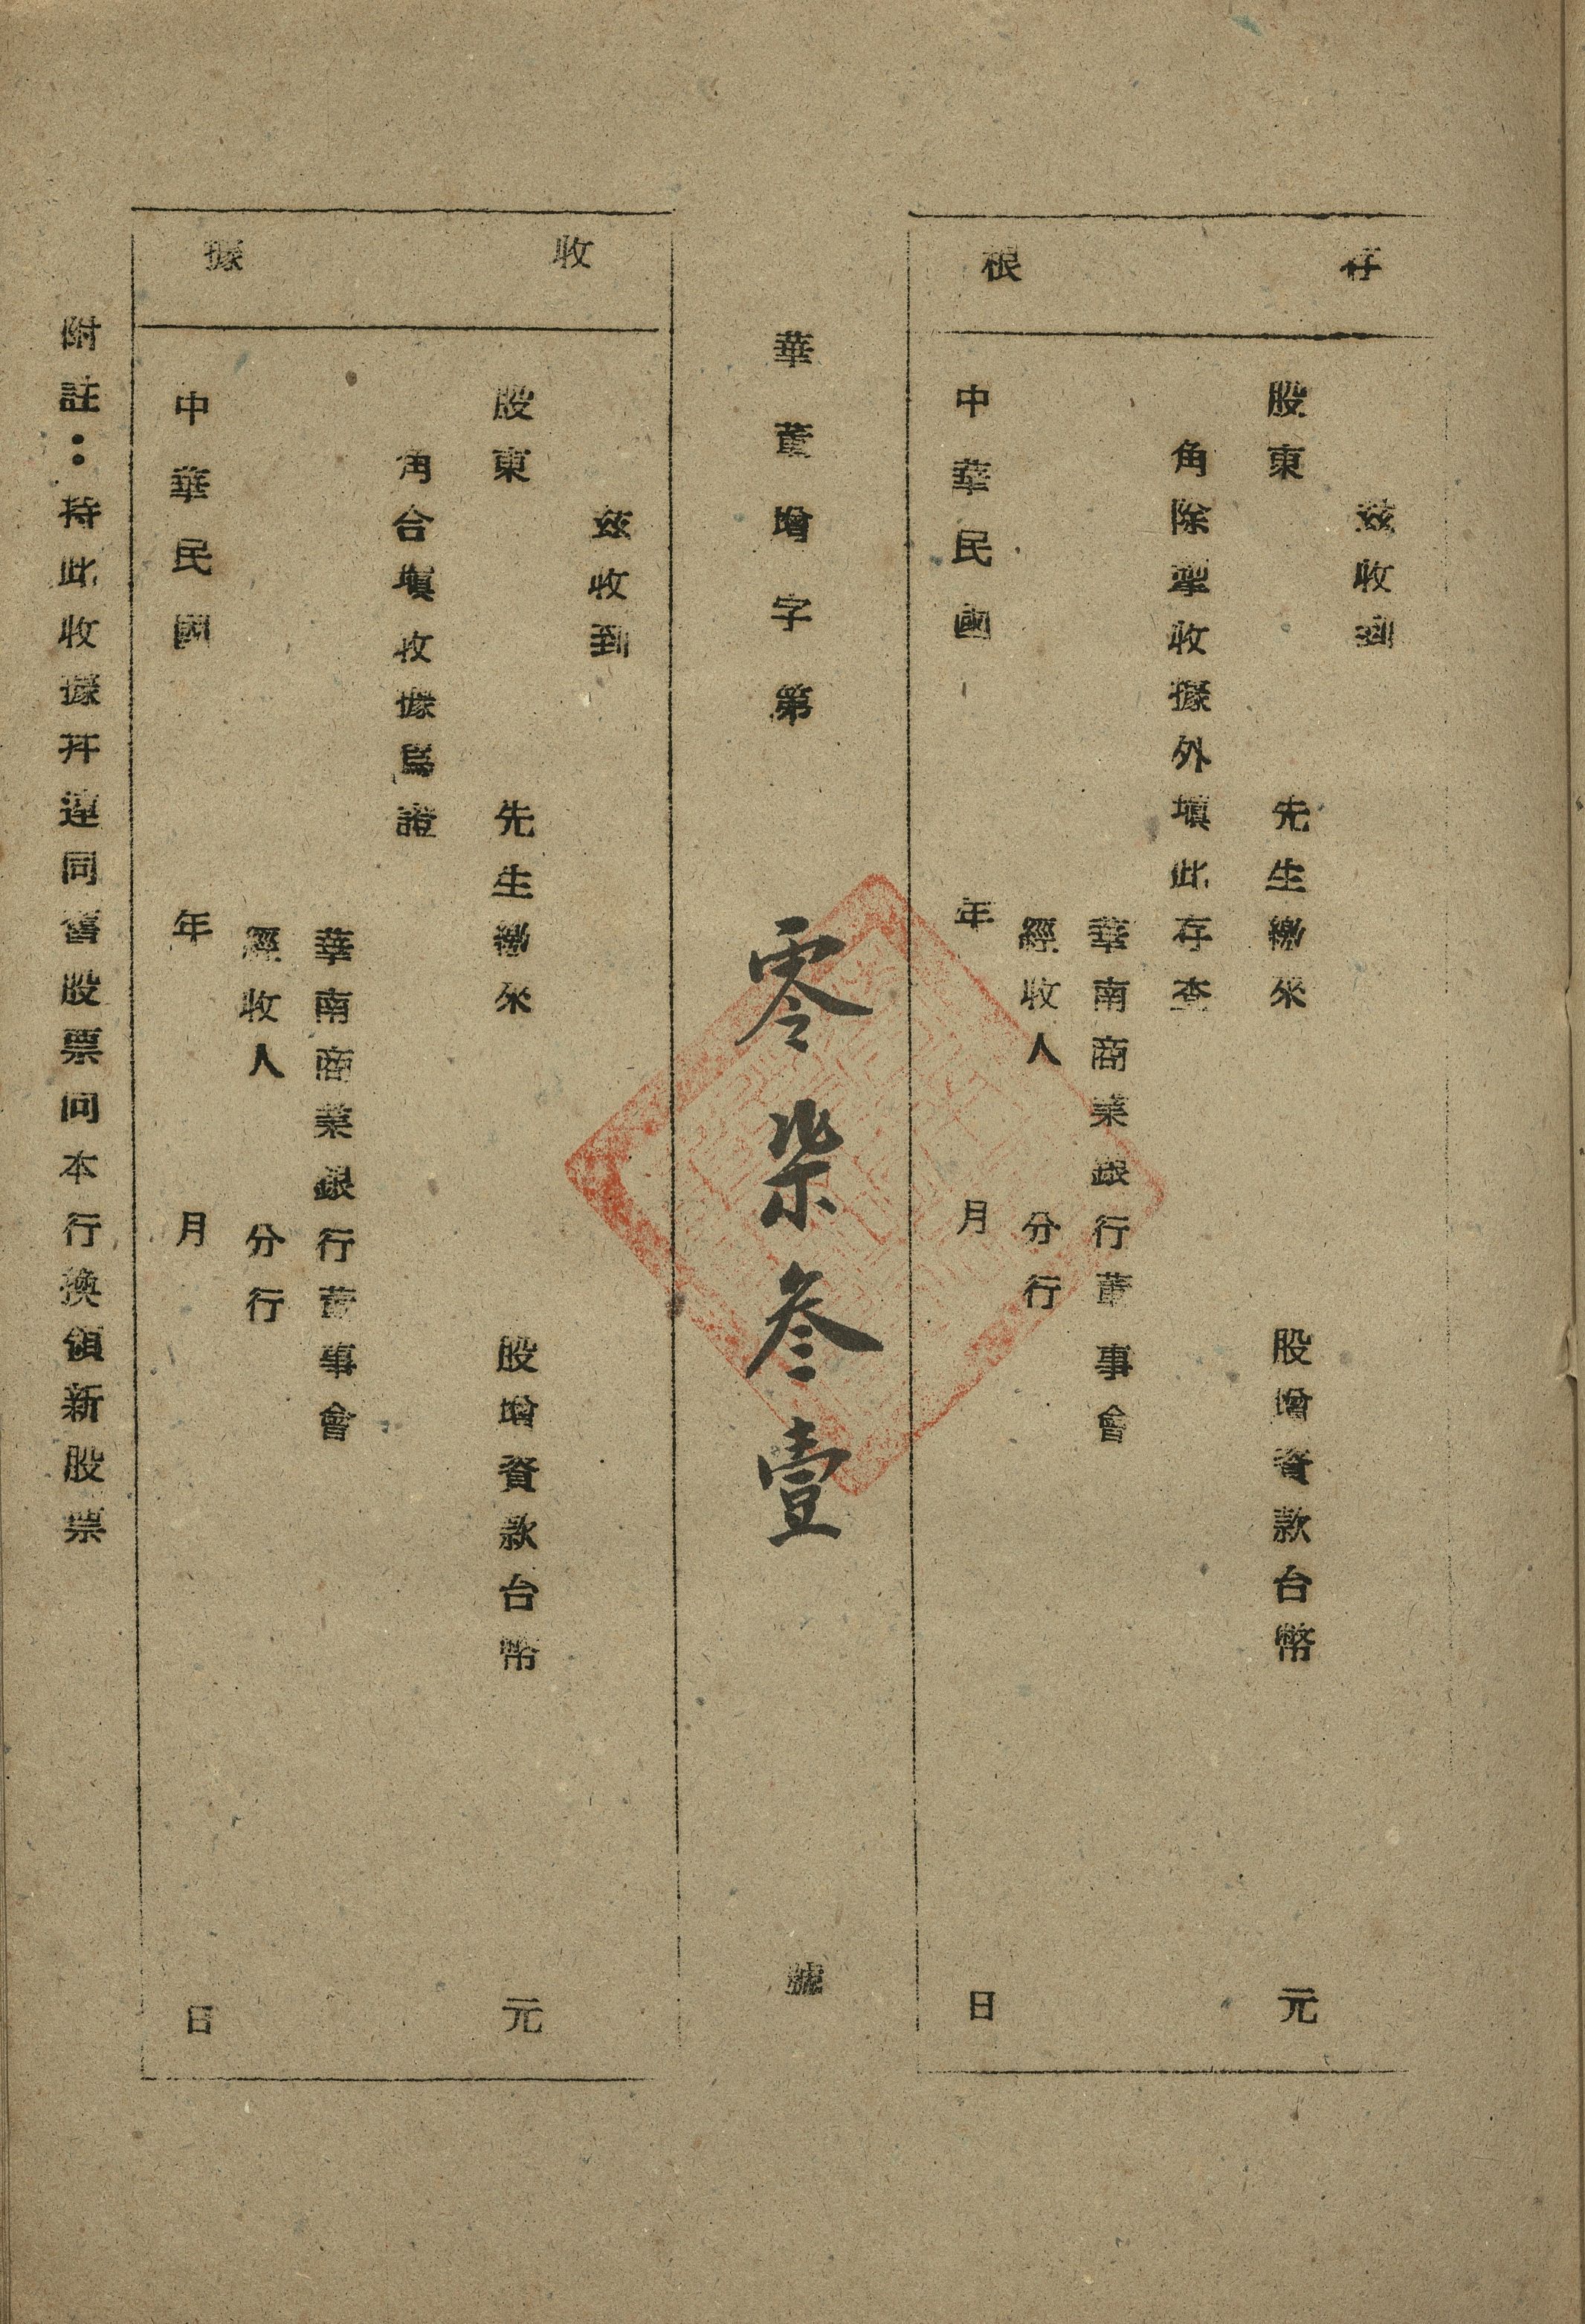 存根
茲收到
股東 先生繳來 股增資款台幣 元
角除掣收據外填此存查
華南商業銀行董事會
經收人 分行
中華民國 年 月 日
華董增字第 零柒叁壹 號
收據
茲收到
股東 先生繳來 股增資款台幣 元
角合填收據爲證
華南商業銀行董事會
經收人 分行
中華民國 年 月 日
附註：持此收據幷連同舊股票向本行換領新股票